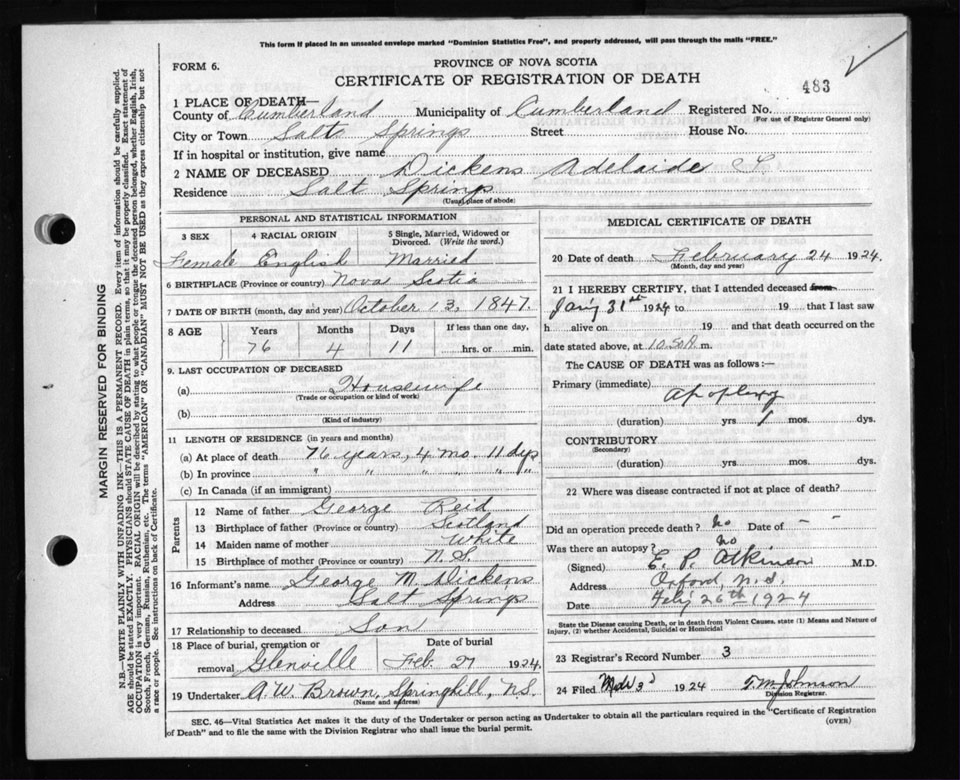 This form if placed in an unsealed envelope marked "Dominion Statistics Free", and properly addressed, will pass through the mails "FREE."
FORM 6.
PROVINCE OF NOVA SCOTIA
CERTIFICATE OF REGISTRATION OF DEATH
483
1 PLACE OF DEATH—
County of Cumberland Municipality of Cumberland Registered No.
(For use of Registrar General only)
City or Town Salt Springs Street House No.
If in hospital or institution, give name
2 NAME OF DECEASED Dickens Adelaide
Residence Salt Springs
(Usual place of abode)
PERSONAL AND STATISTICAL INFORMATION
3 SEX 4 RACIAL ORIGIN 5 Single, Married, Widowed or Divorced. (Write the word.)
Female English Married
6 BIRTHPLACE (Province or country) Nova Scotia
7 DATE OF BIRTH (month, day and year) October 13, 1847.
8 AGE Years Months Days If less than one day,
76 4 11 hrs. or min.
9. LAST OCCUPATION OF DECEASED
(a) Housewife
(Trade or occupation or kind of work)
(b)
(Kind of industry)
11 LENGTH OF RESIDENCE (in years and months)
(a) At place of death 76 years, 4 mo. 11 dys
(b) In province " " " " " "
(c) In Canada (if an immigrant)
Parents
12 Name of father George Reid
13 Birthplace of father (Province or country) Scotland
14 Maiden name of mother White
15 Birthplace of mother (Province or country) N.S.
16 Informant's name George M. Dickens
Address Salt Springs
17 Relationship to deceased Son
18 Place of burial, cremation or removal Glenville
Date of burial Feb. 27 1924.
19 Undertaker A.W. Brown, Springhill, N.S.
(Name and address)
MEDICAL CERTIFICATE OF DEATH
20 Date of death February 24 1924.
(Month, day and year)
21 I HEREBY CERTIFY, that I attended deceased from
Jan'y 31st 1924 to 19 that I last saw
h alive on 19 and that death occurred on the
date stated above, at m.
The CAUSE OF DEATH was as follows:—
Primary (immediate) Apoplexy
(duration) yrs mos. dys.
CONTRIBUTORY
(Secondary)
(duration) yrs mos. dys.
22 Where was disease contracted if not at place of death?
Did an operation precede death? No Date of – –
Was there an autopsy? No
(Signed) E. P. Atkinson M.D.
Address Oxford, N.S.
Date Feb'y 26th 1924
State the Disease causing Death, or in death from Violent Causes, state (1) Means and Nature of
Injury, (2) whether Accidental, Suicidal or Homicidal
23 Registrar's Record Number 3
24 Filed 3d 1924 T. M. Johnson
Division Registrar.
SEC. 46—Vital Statistics Act makes it the duty of the Undertaker or person acting as Undertaker to obtain all the particulars required in the "Certificate of Registration
of Death" and to file the same with the Division Registrar who shall issue the burial permit.
(OVER)
MARGIN RESERVED FOR BINDING
N.B.—WRITE PLAINLY WITH UNFADING INK—THIS IS A PERMANENT RECORD. Every item of information should be carefully supplied.
AGE should be stated EXACTLY. PHYSICIANS should STATE CAUSE OF DEATH in plain terms, so that it may be properly classified. Exact statement of
OCCUPATION is very important. RACIAL ORIGIN will be described by stating to what people or tongue the deceased person belonged, whether English, Irish,
Scotch, French, German, Russian, Ruthenian, etc. The terms "AMERICAN" OR "CANADIAN" MUST NOT BE USED as they express citizenship but not
a race or people. See instructions on back of Certificate.